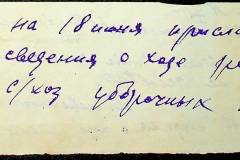 на 18 июня присла
сведения о ходе ре
с/хоз уборочных